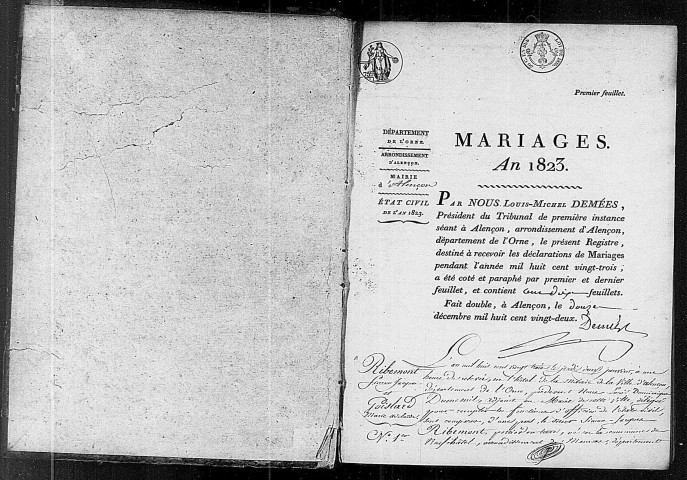 Premier feuillet.
DÉPARTEMENT
DE L'ORNE.
ARRONDISSEMENT
D'ALENÇON.
MAIRIE
d'Alençon
ÉTAT CIVIL
DE L'AN 1823.
MARIAGES.
An 1823.
PAR NOUS, LOUIS-MICHEL DEMÉES,
Président du Tribunal de première instance
séant à Alençon, arrondissement d'Alençon,
département de l'Orne, le présent Registre,
destiné à recevoir les déclarations de Mariages
pendant l'année mil huit cent vingt-trois;
a été coté et paraphé par premier et dernier
feuillet, et contient feuillets.
Fait double, à Alençon, le douze
décembre mil huit cent vingt-deux.
Demées
Ribemont
et
Poislard
N.° 1er
L'an mil huit cent vingt trois le jeudi janvier, à une
heure de , en l'hôtel de la mairie de la ville d'Alençon,
département de l'Orne, pardevant Nous Louis Dominique
adjoint au Maire de cette ville, délégué
pour remplir les fonctions d'officier de l'état civil,
Ribemont, né en la commune de
Neufchâtel, arrondissement de Mamers, département